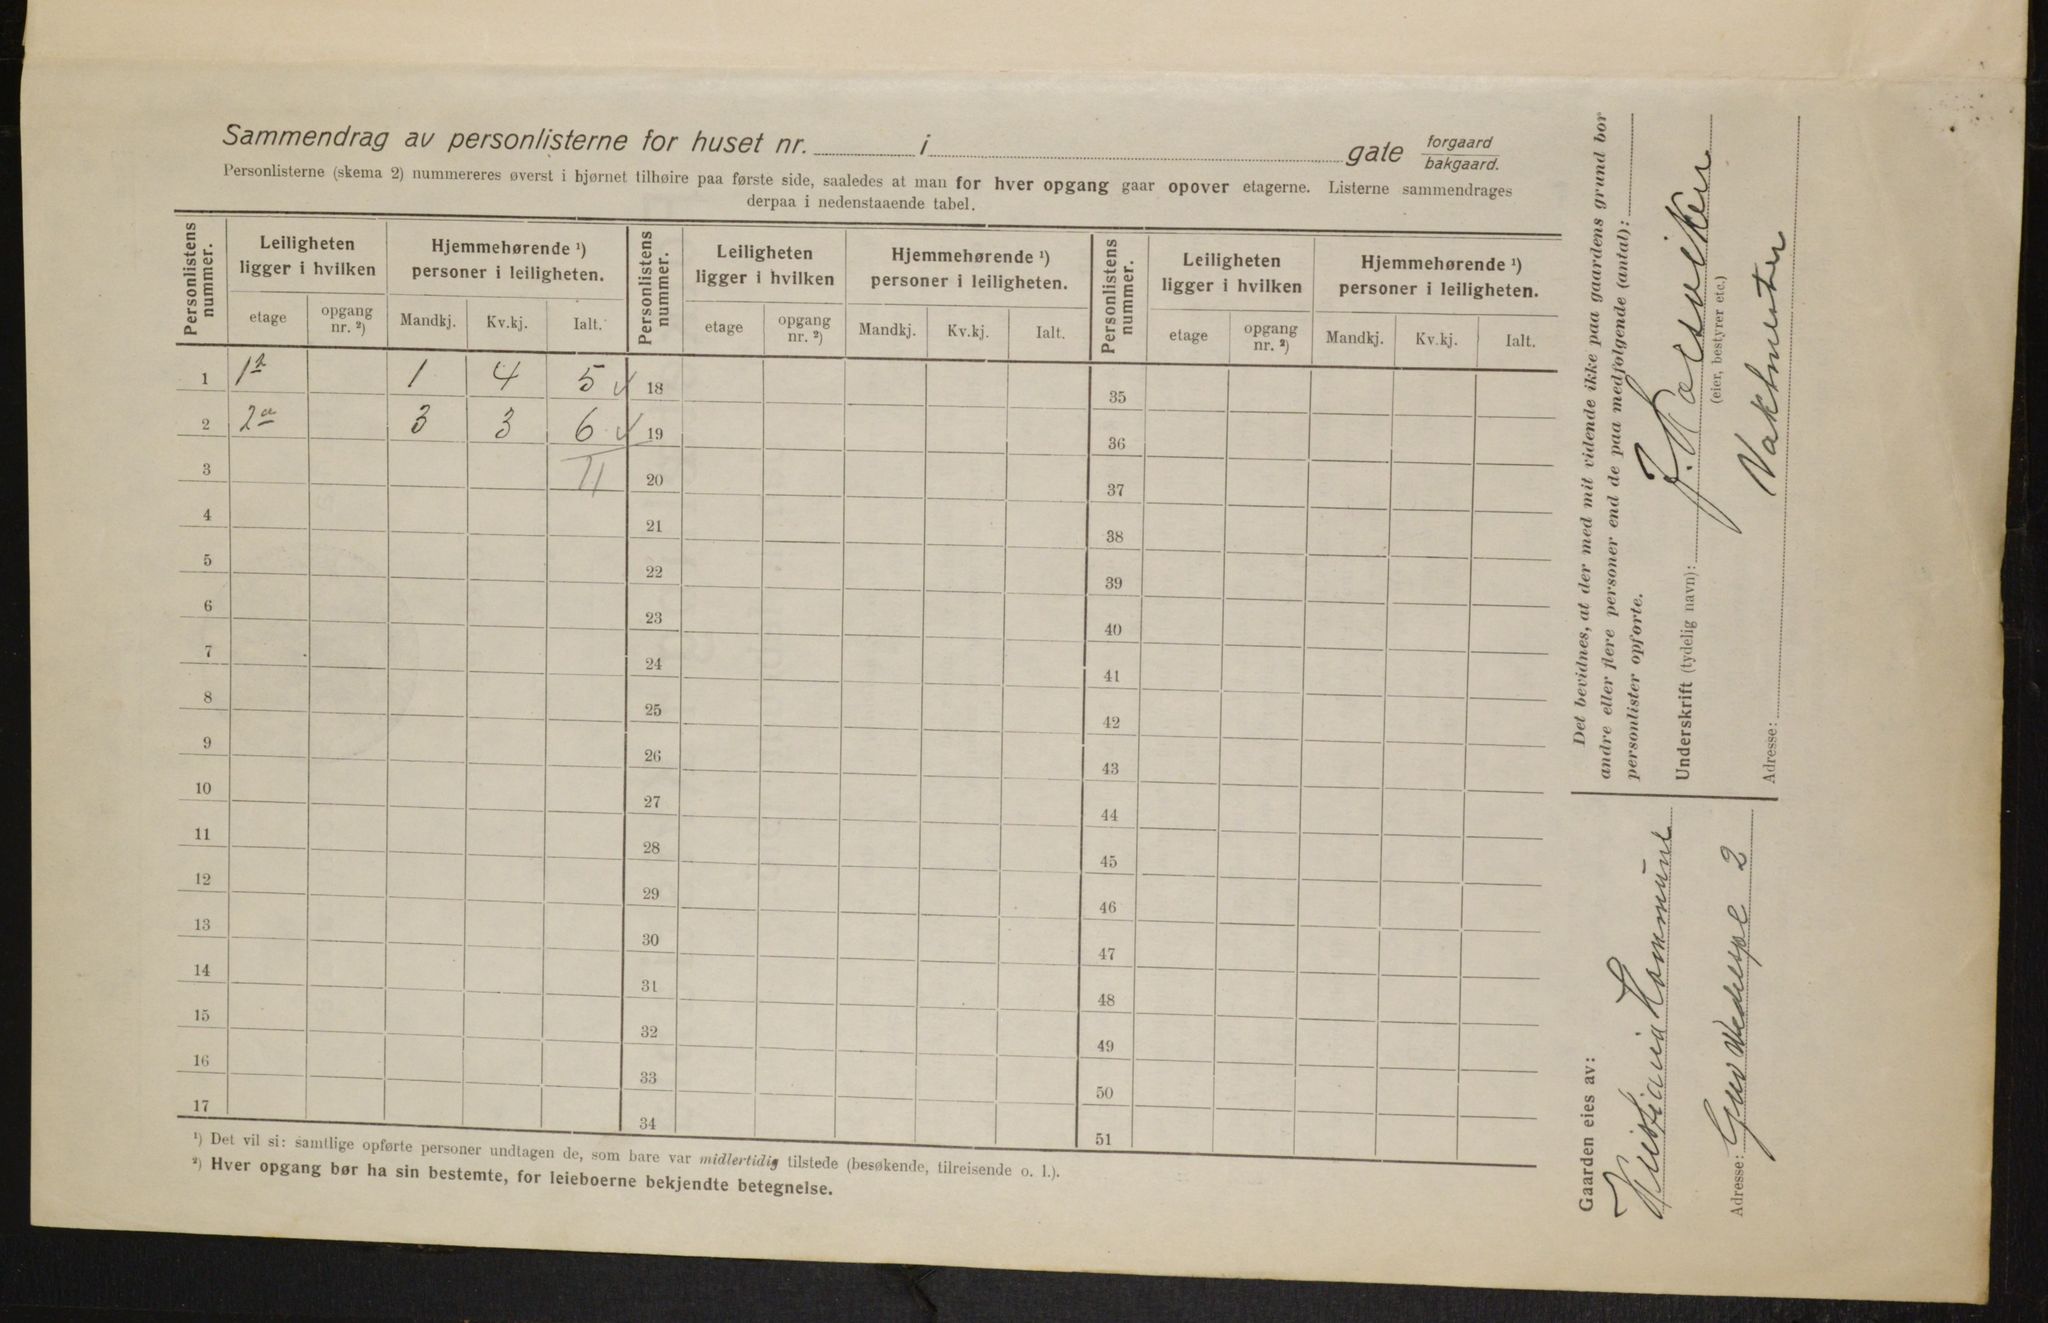 Sammendrag av personlisterne for huset nr. i gate forgaard bakgaard.
Personlisterne (skema 2) nummereres øverst i hjørnet tilhøire paa første side, saaledes at man for hver opgang gaar opover etagerne. Listerne sammendrages
derpaa i nedenstaaende tabel.
Personlistens nummer. Leiligheten ligger i hvilken Hjemmehørende ¹) personer i leiligheten. Personlistens nummer. Leiligheten ligger i hvilken Hjemmehørende ¹) personer i leiligheten. Personlistens nummer. Leiligheten ligger i hvilken Hjemmehørende ¹) personer i leiligheten.
etage opgang nr. ²) Mandkj. Kv.kj. Ialt. etage opgang nr. ²) Mandkj. Kv.kj. Ialt. etage opgang nr. ²) Mandkj. Kv.kj. Ialt.
1 1ste 1 4 5 18 35
2 2a 3 3 6 19 36
3 11 20 37
4 21 38
5 22 39
6 23 40
7 24 41
8 25 42
9 26 43
10 27 44
11 28 45
12 29 46
13 30 47
14 31 48
15 32 49
16 33 50
17 34 51
¹) Det vil si: samtlige opførte personer undtagen de, som bare var midlertidig tilstede (besøkende, tilreisende o. l.).
²) Hver opgang bør ha sin bestemte, for leieboerne bekjendte betegnelse.
Det bevidnes, at der med mit vidende ikke paa gaardens grund bor
andre eller flere personer end de paa medfølgende (antal):
personlister opførte.
Underskrift (tydelig navn):
(eier, bestyrer etc.)
Vaktmester
Adresse:
Gaarden eies av:
Kristiania Kommune
Adresse: 2